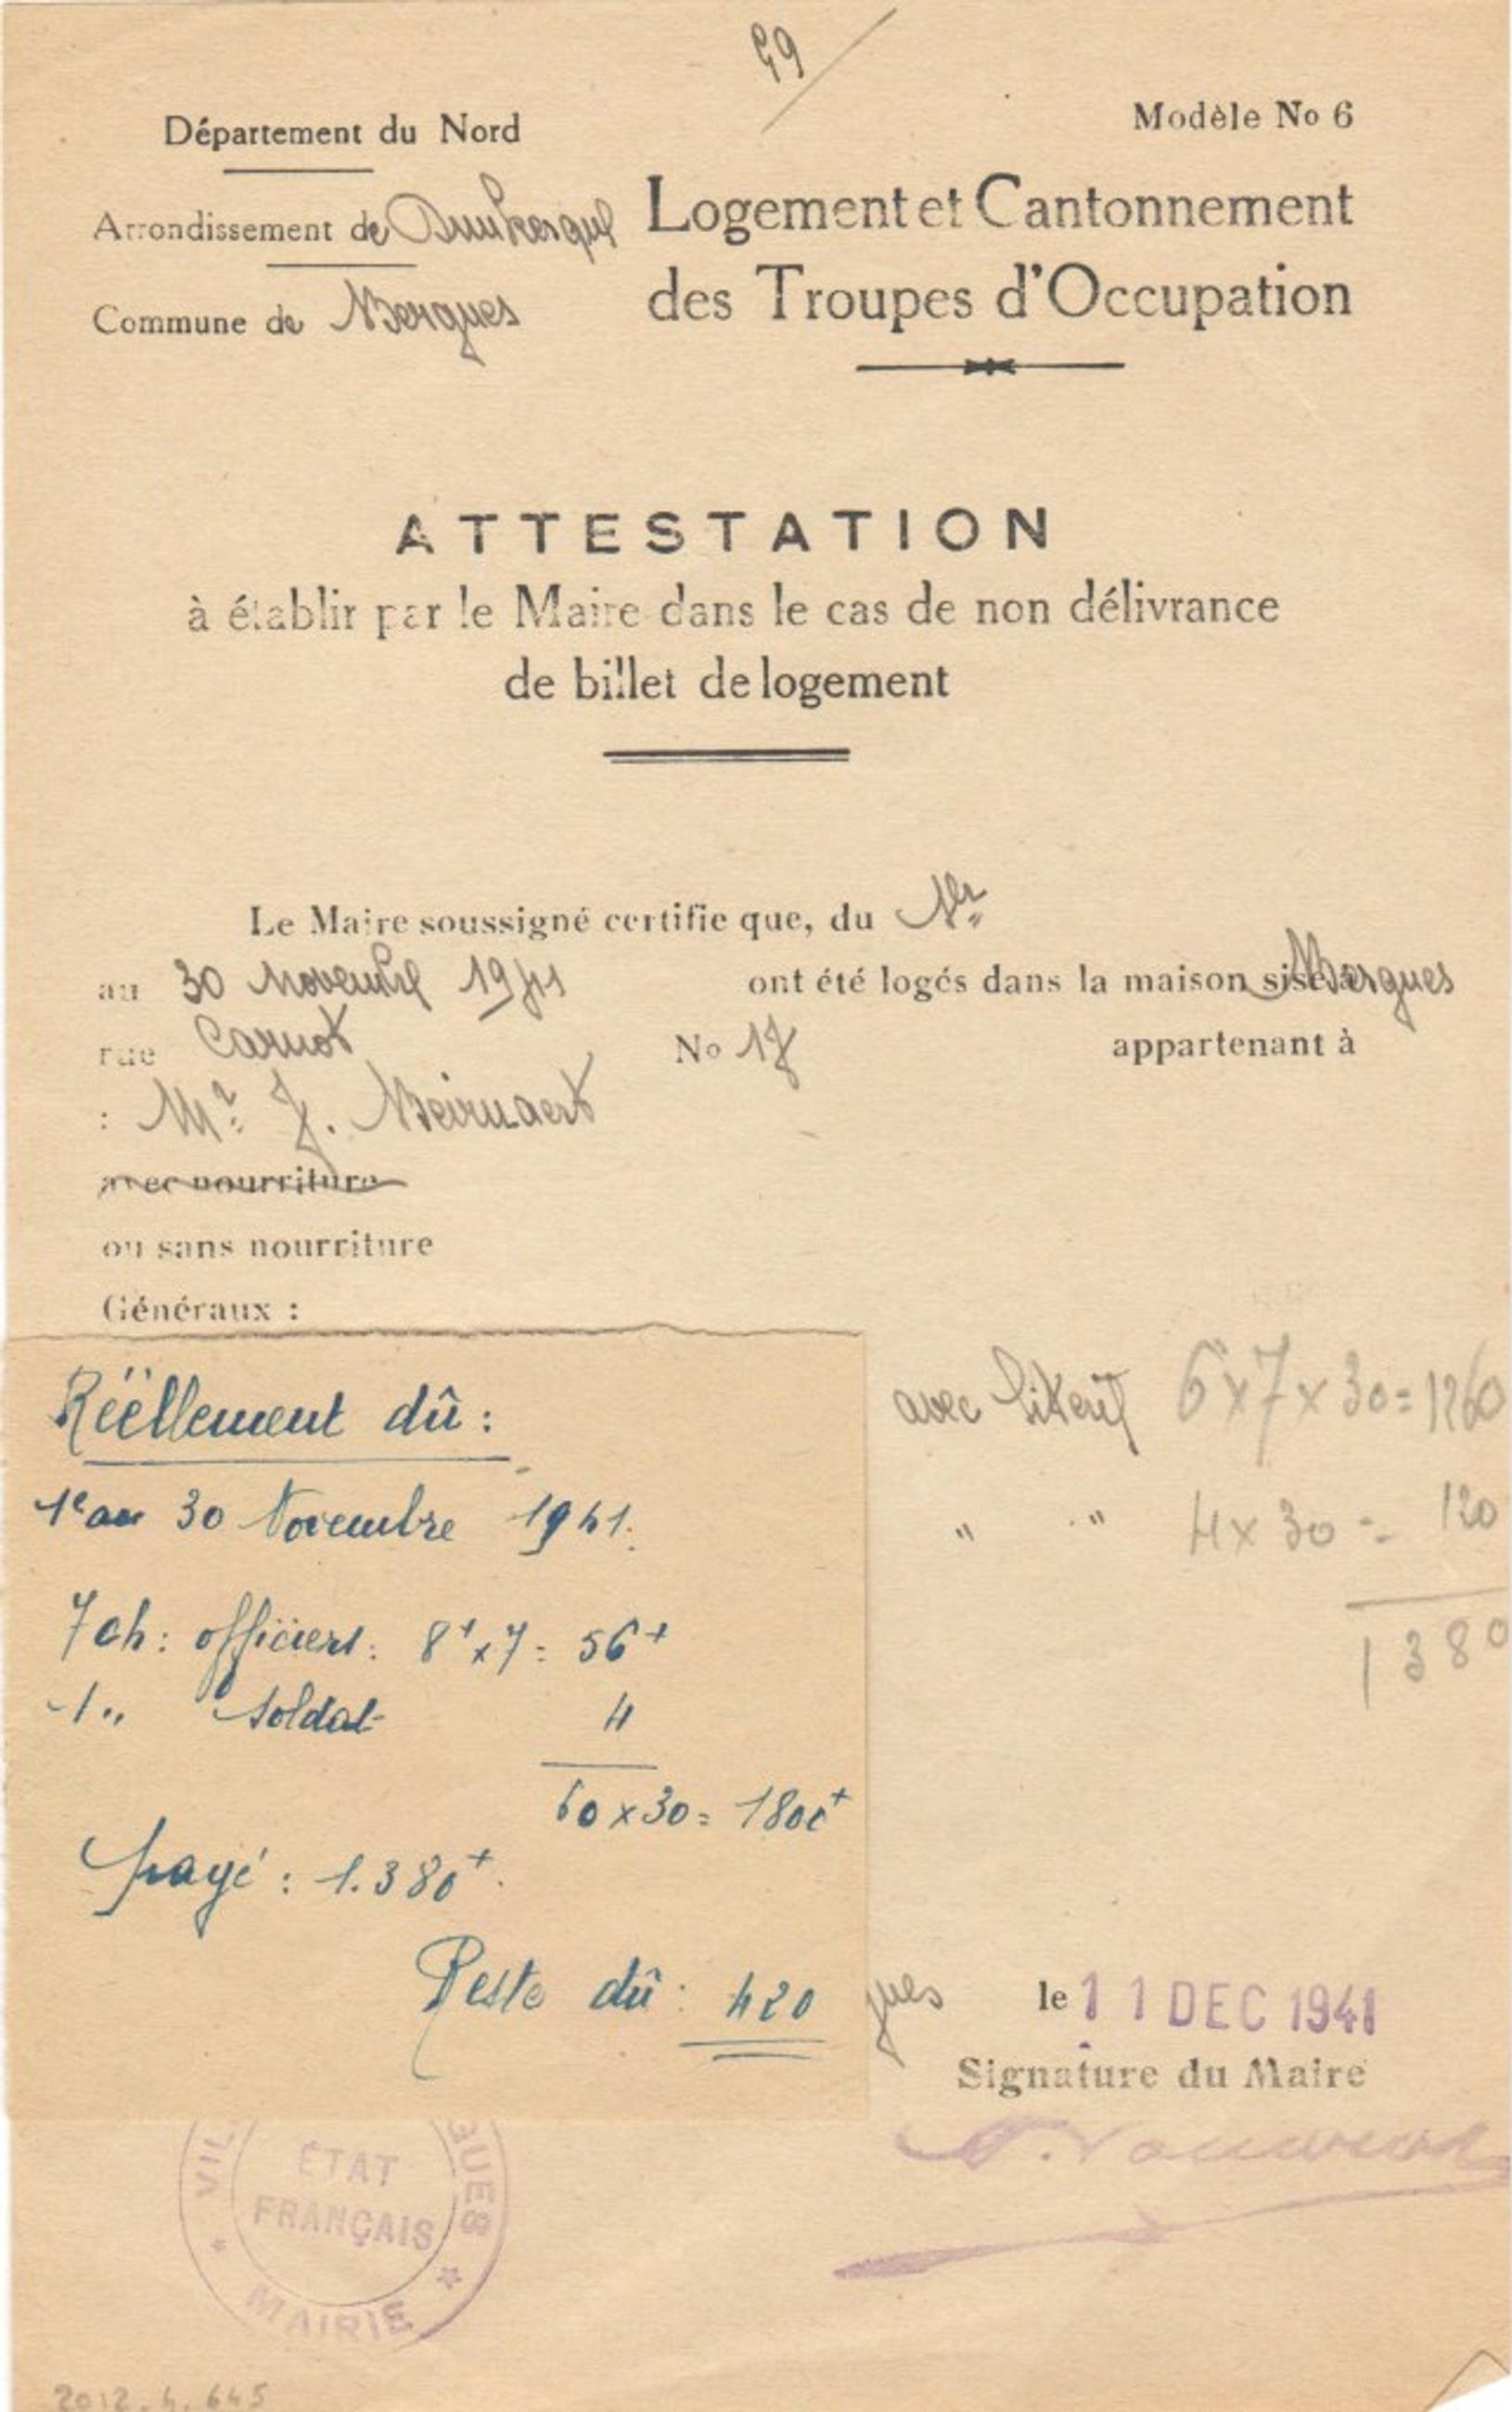 49
Département du Nord
Modèle No 6
Arrondissement de Dunkerque
Commune de Bergues
Logement et Cantonnement
des Troupes d'Occupation
ATTESTATION
à établir par le Maire dans le cas de non délivrance
de billet de logement
Le Maire soussigné certifie que, du 1er
au 30 Novembre 1941 ont été logés dans la maison sise à Bergues
rue Carnot No 17 appartenant à
: Mr J. Beirnaert
avec nourriture
ou sans nourriture
Généraux :
Réëllement dû :
1e au 30 Novembre 1941.
7 ch : officiers : 8+ x 7 = 56+
1 " soldat 4
60 x 30 = 1800+
payé : 1.380+.
Reste dû : 420
avec literie 6 x 7 x 30 = 1260
" " 4 x 30 = 120
1380
gues le 11 DEC 1941
Signature du Maire
VIL GUES
ÉTAT
FRANÇAIS
* MAIRIE *
2012.4.645